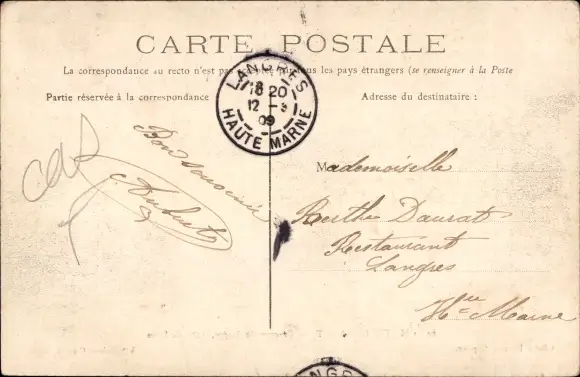 CARTE POSTALE
La correspondance au recto n'est pas pas tous les pays étrangers (se renseigner à la Poste
Partie réservée à la correspondance
Adresse du destinataire :
LANGRES
18 20
12 - 3
09
HAUTE MARNE
Bon souvenir
Mademoiselle
Berthe Daurat
Restaurant
Langres
Hte Marne